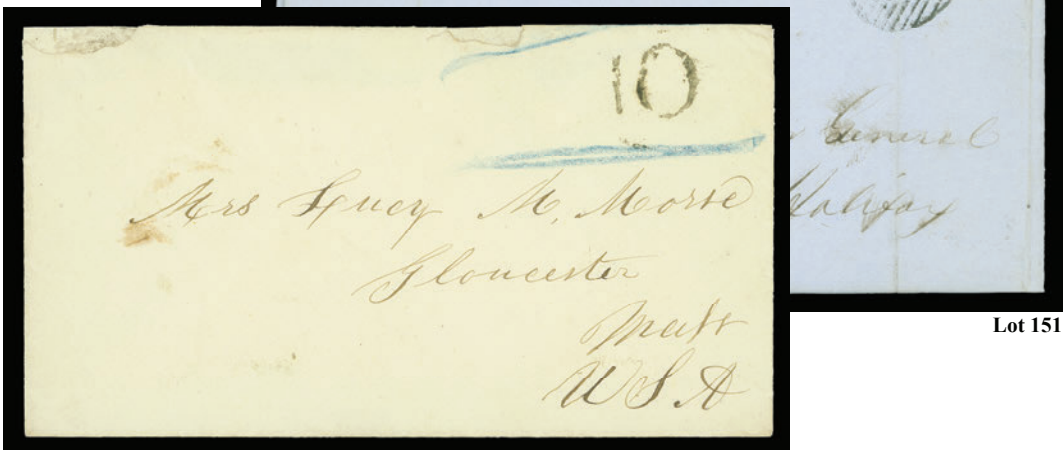 10
Mrs Lucy M. Morse
Gloucester
Mass
U S A
General
Halifax
Lot 151